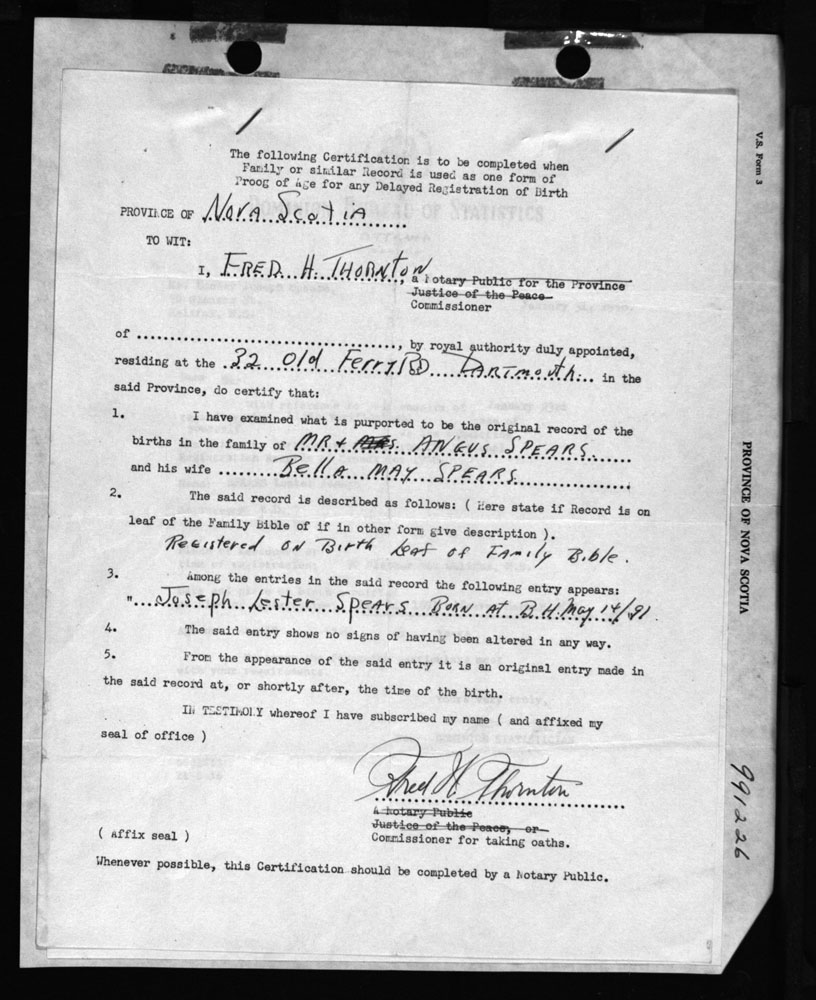 The following Certification is to be completed when
Family or similar Record is used as one form of
Proog of Age for any Delayed Registration of Birth
PROVINCE OF Nova Scotia
TO WIT:
I, FRED. H. THORNTON, a Notary Public for the Province
Justice of the Peace
Commissioner
of ..............................., by royal authority duly appointed,
residing at the 32 Old Ferry RD DARTMOUTH in the
said Province, do certify that:
1. I have examined what is purported to be the original record of the
births in the family of MR + MRS. ANGUS SPEARS
and his wife Bella MAY SPEARS
2. The said record is described as follows: ( Here state if Record is on
leaf of the Family Bible of if in other form give description ).
Registered on Birth Leaf of Family Bible.
3. Among the entries in the said record the following entry appears:
"... Joseph Lester Spears Born At B.H. May 14/91
4. The said entry shows no signs of having been altered in any way.
5. From the appearance of the said entry it is an original entry made in
the said record at, or shortly after, the time of the birth.
IN TESTIMONY whereof I have subscribed my name ( and affixed my
seal of office )
Fred H Thornton
A Notary Public
Justice of the Peace, or
( Affix seal ) Commissioner for taking oaths.
Whenever possible, this Certification should be completed by a Notary Public.
V.S. Form 3
PROVINCE OF NOVA SCOTIA
991226